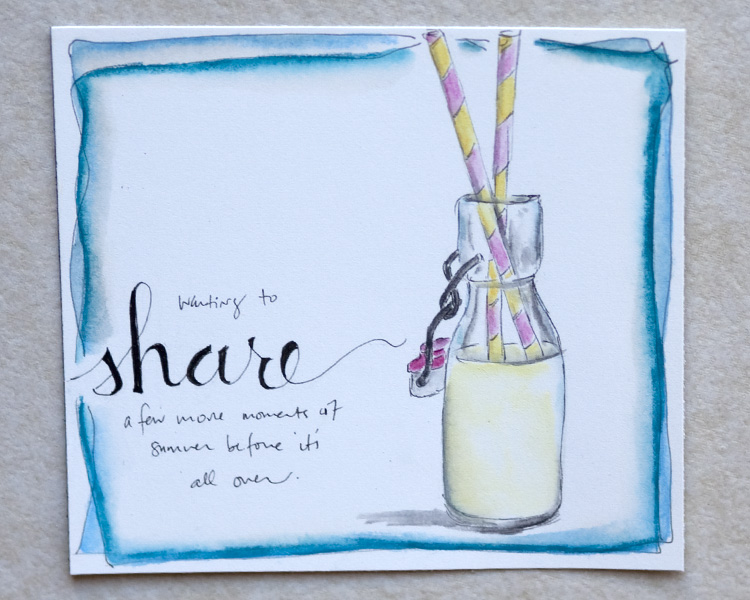 wanting to
share
a few more moments of
summer before it's
all over.